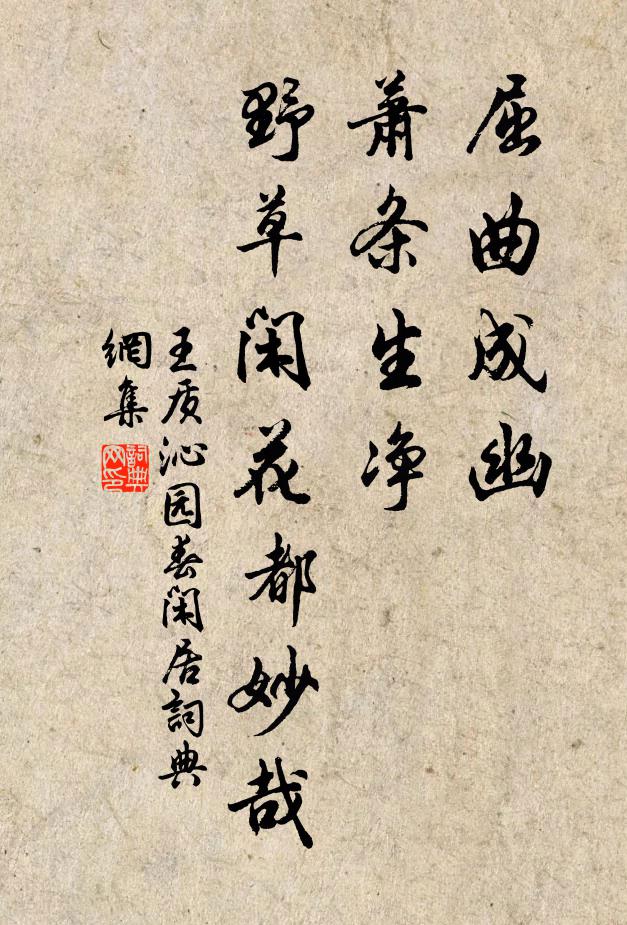 屈曲成幽
萧条生净
野草闲花都妙哉
王质沁园春闲居詞典
網集
詞典網印